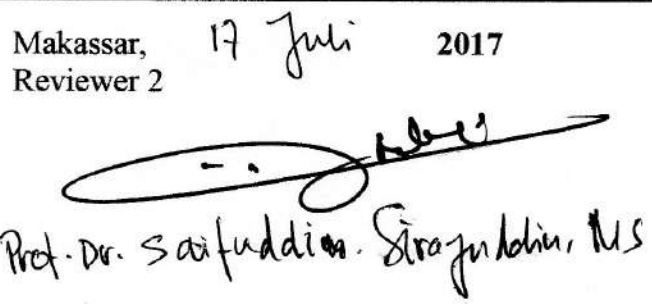 Makassar, 17 Juli 2017
Reviewer 2
Prof. Dr. Saifuddin. Sirajuddin, MS